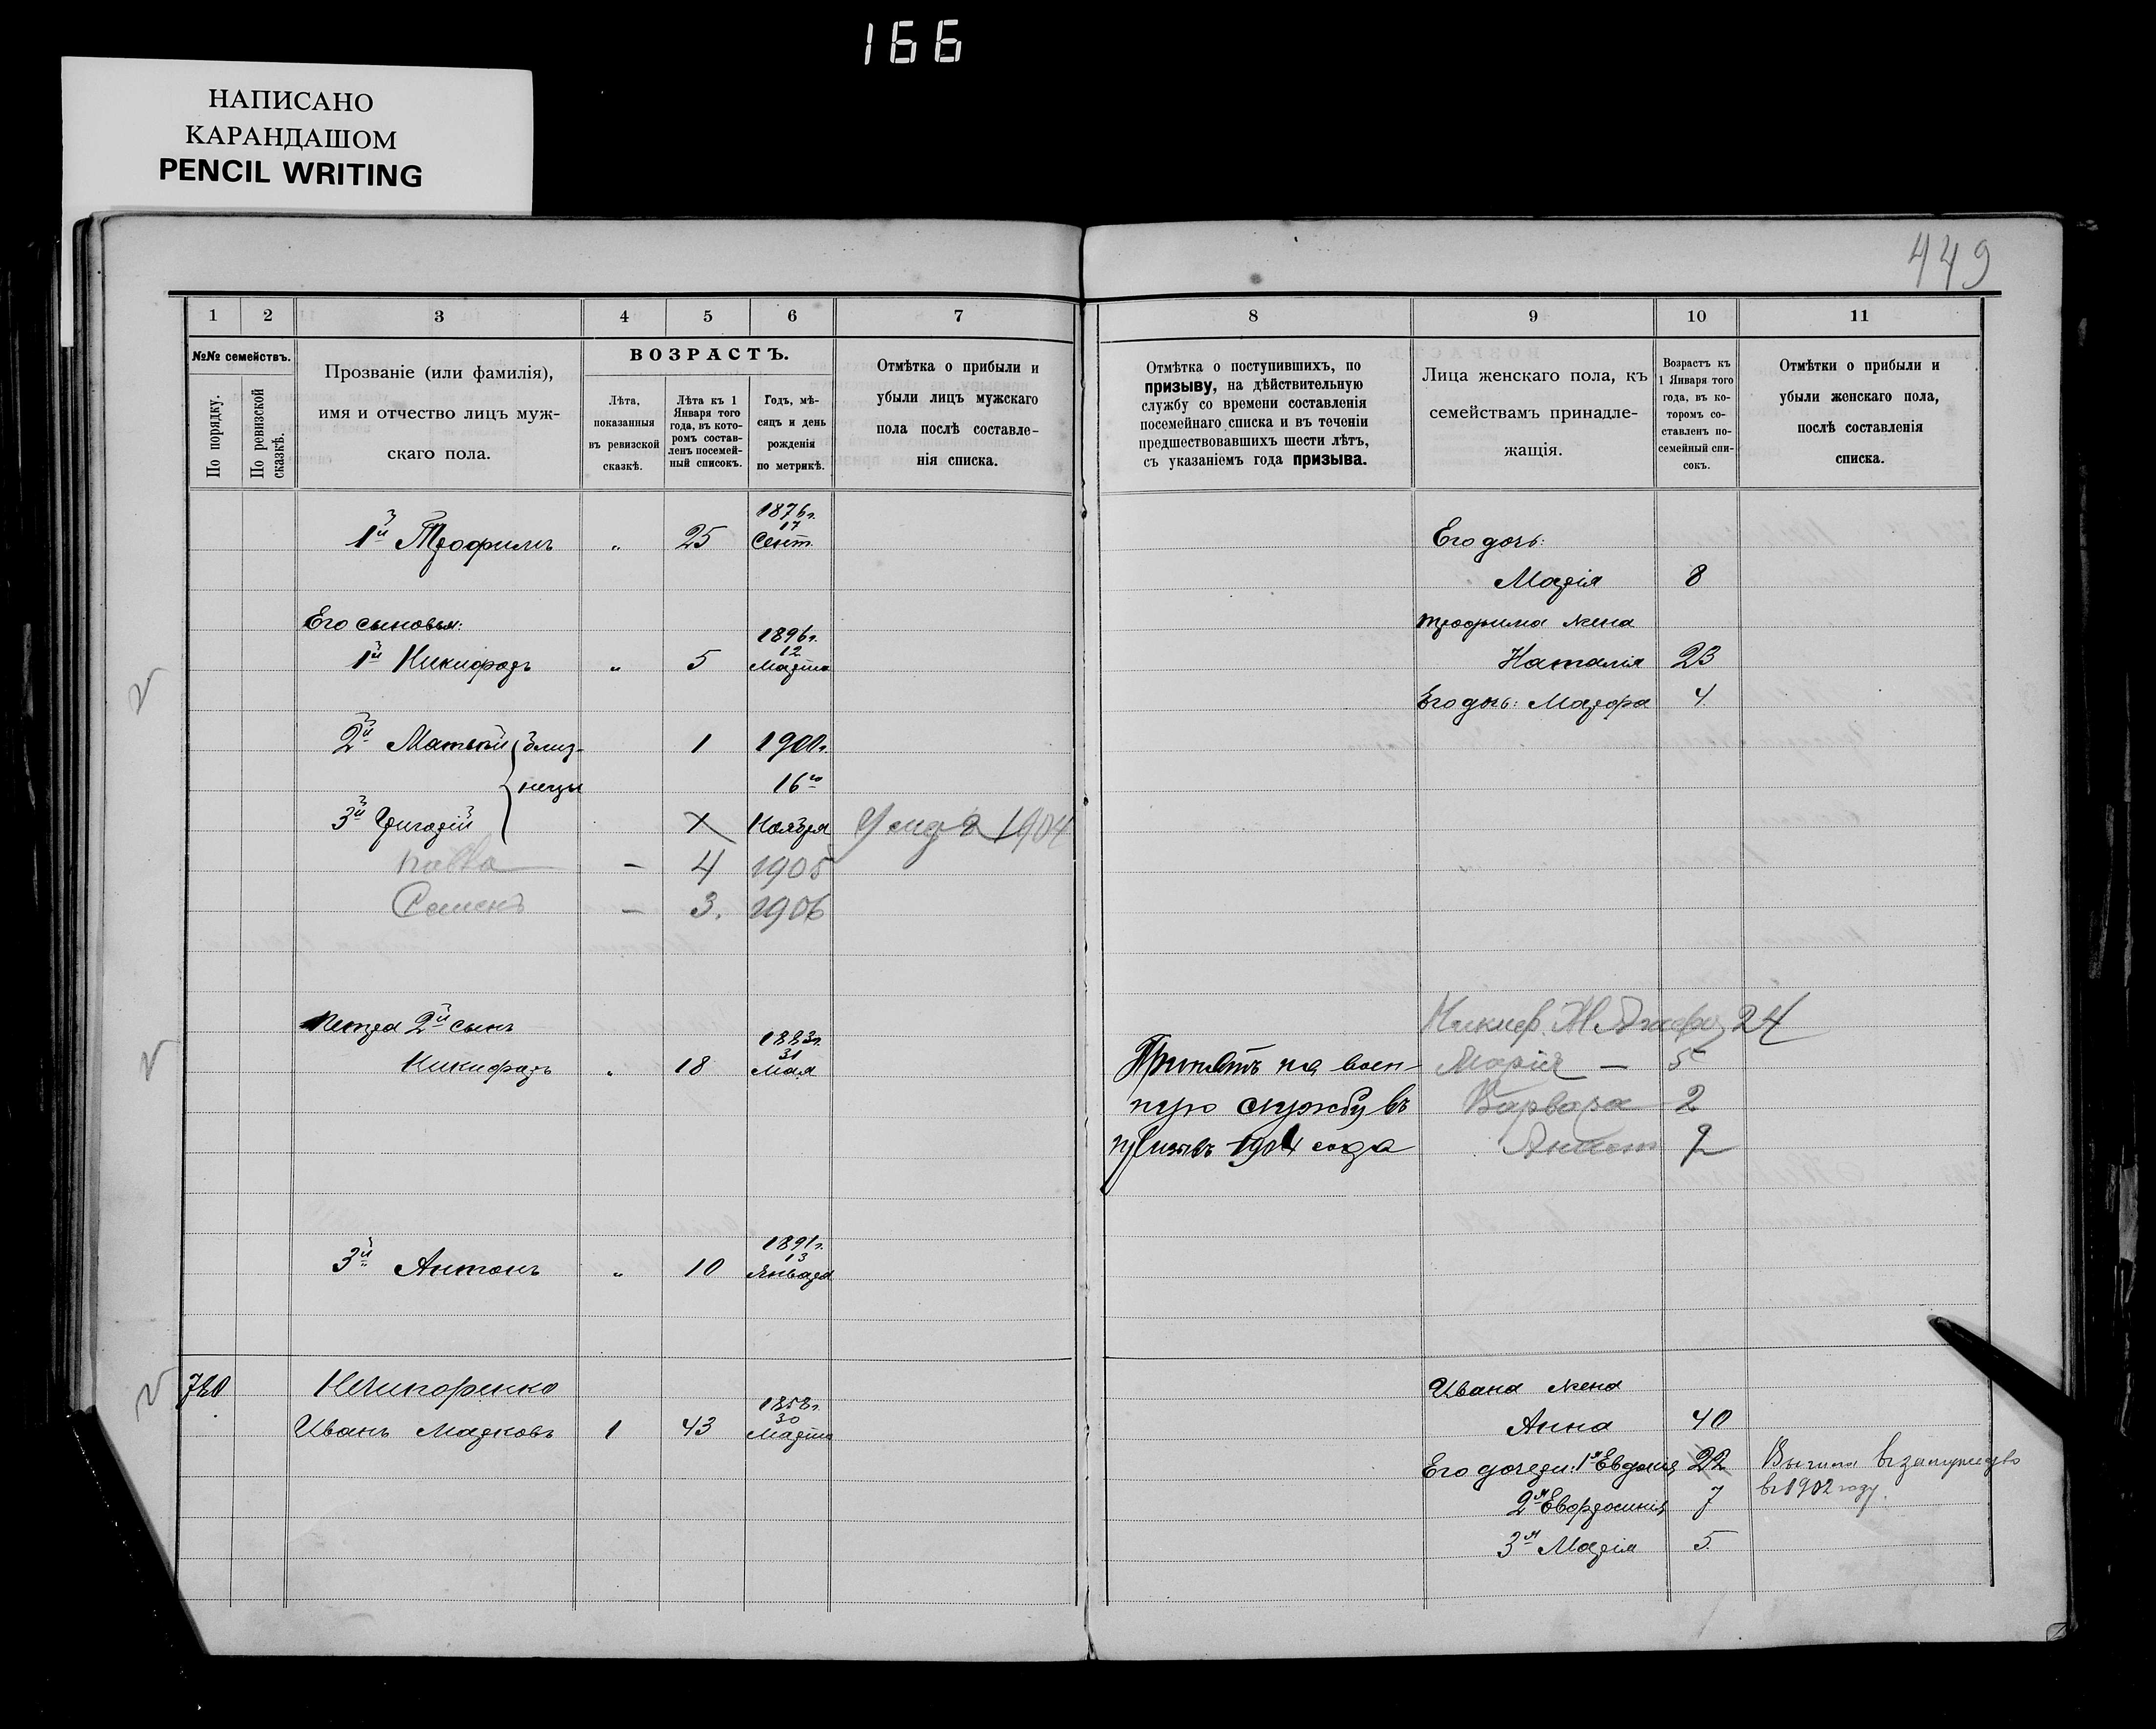 166
НАПИСАНО
КАРАНДАШОМ
PENCIL WRITING
449
1 2 3 4 5 6 7
№№ семействъ.
По порядку.
По ревизской сказкѣ.
Прозваніе (или фамилія),
имя и отчество лицъ муж-
скаго пола.
ВОЗРАСТЪ.
Лѣта,
показанныя
въ ревизской
сказкѣ.
Лѣта къ 1
Января того
года, въ кото-
ромъ состав-
ленъ посемей-
ный списокъ.
Годъ, мѣ-
сяцъ и день
рожденія
по метрикѣ.
Отмѣтка о прибыли и
убыли лицъ мужскаго
пола послѣ составле-
нія списка.
1й Трофимъ „ 25 1876г. 17 Сент.
Его сыновья:
1й Никифоръ „ 5 1896г. 12 Марта
2й Матвѣй близ- 1 1900г.
нецы 16го
3й Григорій 1 Ноября Умеръ 1904
Павло — 4 1905
Семенъ — 3. 1906
Петра 2й сынъ
Никифоръ „ 18 1883г. 31 Мая
3й Антонъ „ 10 1891г. 13 Января
720 Нечипоренко
Иванъ Марковъ 1 43 1858г. 30 Марта
8 9 10 11
Отмѣтка о поступившихъ, по
призыву, на дѣйствительную
службу со времени составленія
посемейнаго списка и въ теченіи
предшествовавшихъ шести лѣтъ,
съ указаніемъ года призыва.
Лица женскаго пола, къ
семействамъ принадле-
жащія.
Возрастъ къ
1 Января того
года, въ ко-
торомъ со-
ставленъ по-
семейный спи-
сокъ.
Отмѣтки о прибыли и
убыли женскаго пола,
послѣ составленія
списка.
Его дочь:
Марія 8
Трофима жена
Наталія 23
Его дочь: Марфа 4
Никиф. Ж. 24
Принятъ на воен- Марія — 5
ную службу въ Варвара 2
призывъ 1904 года 2
Ивана жена
Анна 40
Его дочери: 1я Евдокія 22 Вышла въ замужество
въ 1902 году.
2я Евфросинія 7
3я Марія 5